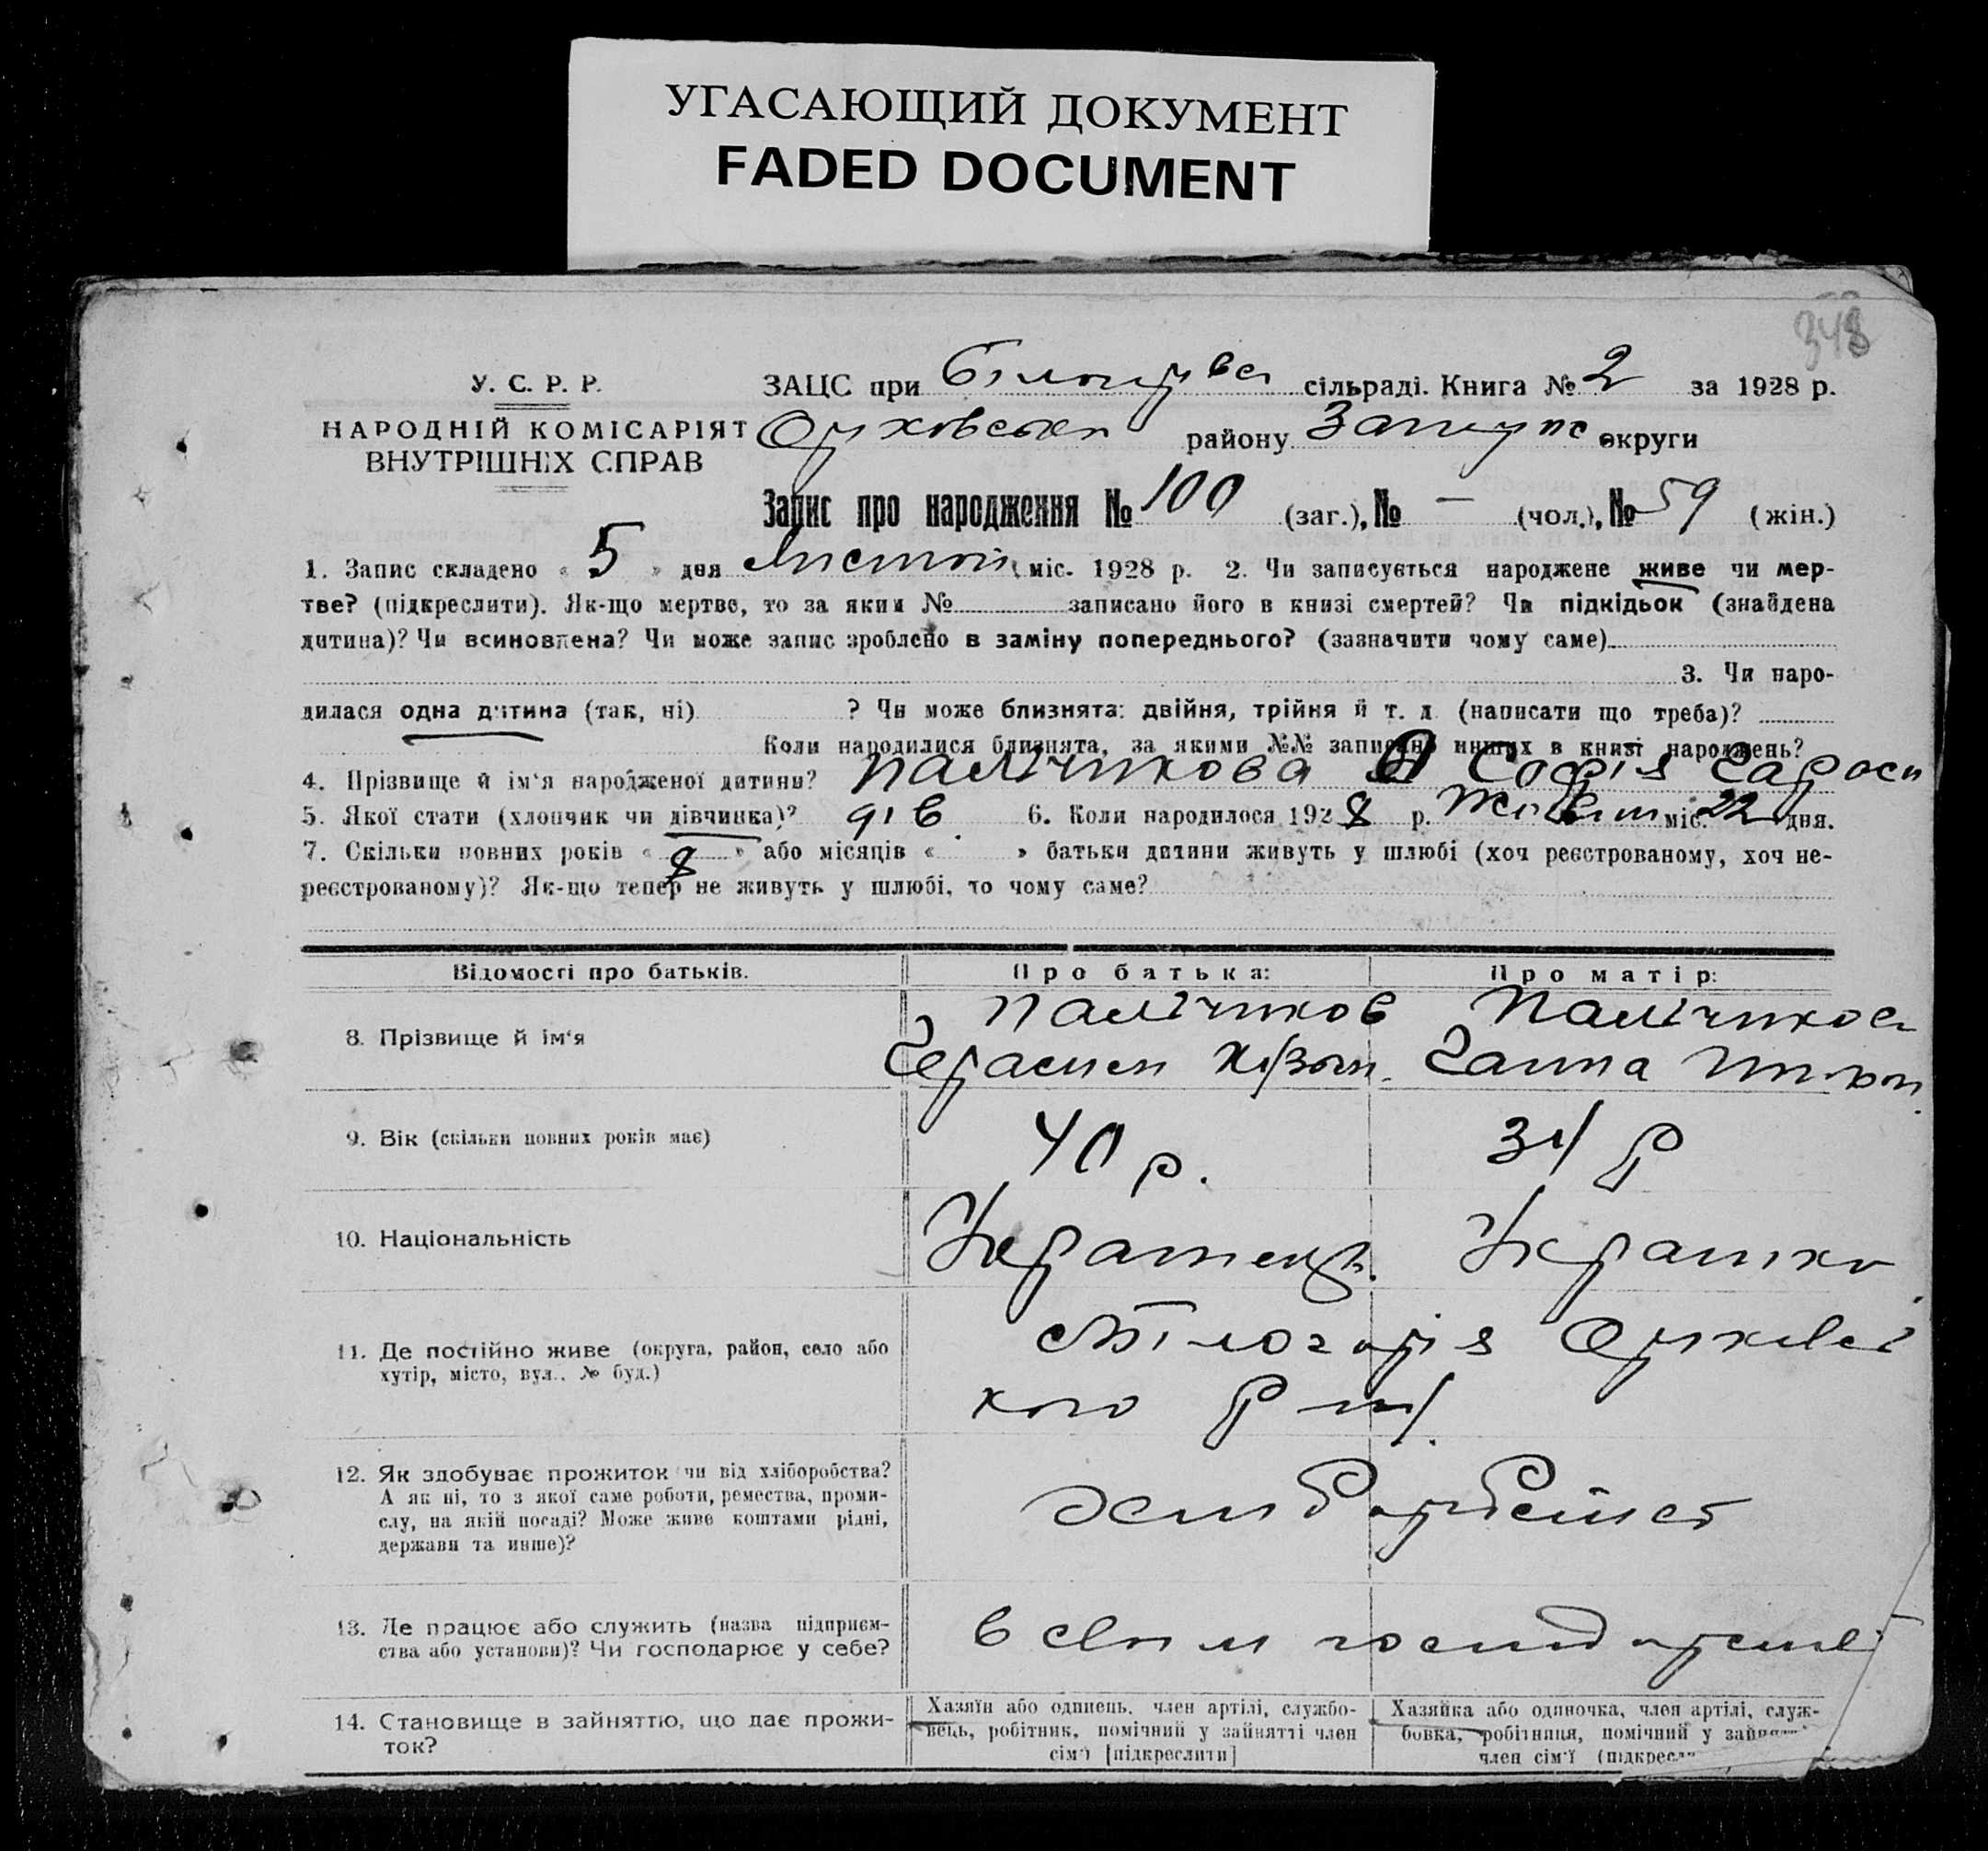 УГАСАЮЩИЙ ДОКУМЕНТ
FADED DOCUMENT
348
У. С. Р. Р.
НАРОДНІЙ КОМІСАРІЯТ
ВНУТРІШНІХ СПРАВ
ЗАЦС при сільраді. Книга № 2 за 1928 р.
району округи
Запис про народження № 100 (заг.), № — (чол.), № 59 (жін.)
1. Запис складено « 5 » дня міс. 1928 р. 2. Чи записується народжене живе чи мер-
тве? (підкреслити). Як-що мертве, то за яким № записано його в книзі смертей? Чи підкідьок (знайдена
дитина)? Чи всиновлена? Чи може запис зроблено в заміну попереднього? (зазначити чому саме)
3. Чи наро-
дилася одна дитина (так, ні) ? Чи може близнята: двійня, трійня й т. д. (написати що треба)?
Коли народилися близнята, за якими №№ записано инших в книзі народжень?
4. Прізвище й ім‘я народженої дитини? Палічикова Софія
5. Якої стати (хлопчик чи дівчинка)? дів. 6. Коли народилося 1928 р. міс. 22 дня.
7. Скільки повних років « 8 » або місяців « » батьки дитини живуть у шлюбі (хоч реєстрованому, хоч не-
реєстрованому)? Як-що тепер не живуть у шлюбі, то чому саме?
Відомості про батьків. Про батька: Про матір:
8. Прізвище й ім‘я Палічиков Палічикова
Герасим Ганна
9. Вік (скільки повних років має) 40 р. 34 р
10. Національність Українець. Українка
11. Де постійно живе (округа, район, село або
хутір, місто, вул., № буд.)
с Білогорія Оріхівсь
кого Рай.
12. Як здобуває прожиток чи від хліборобства?
А як ні, то з якої саме роботи, ремества, проми-
слу, на якій посаді? Може живе коштами рідні,
держави та инше)?
13. Де працює або служить (назва підприєм-
ства або установи)? Чи господарює у себе?
в своїм господарстві
14. Становище в зайняттю, що дає прожи-
ток?
Хазяїн або одинець, член артілі, службо-
вець, робітник, помічний у зайнятті член
сім‘ї [підкреслити]
Хазяйка або одиночка, член артілі, служ-
бовка, робітниця, помічний у
член сім‘ї